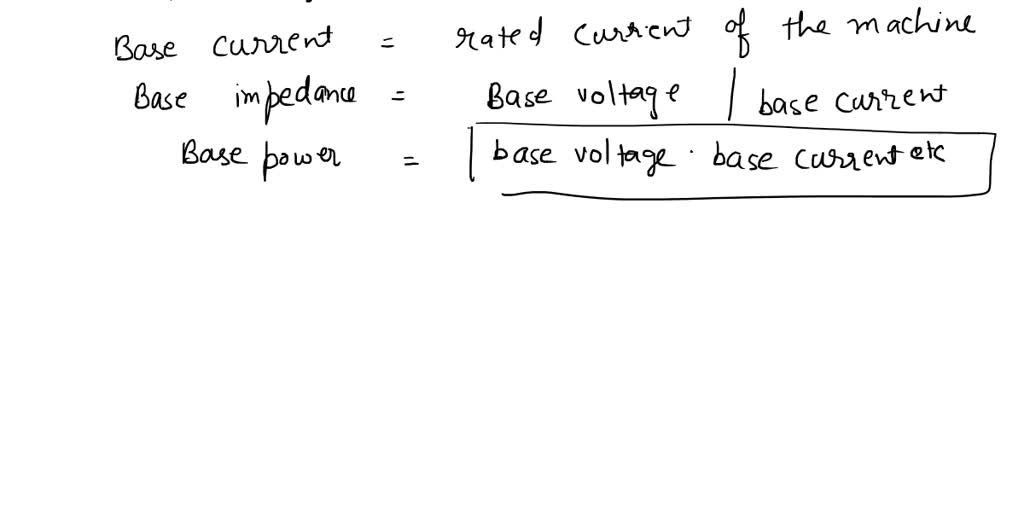 Base current = rated current of the machine
Base impedance = Base voltage / base current
Base power = base voltage . base current etc